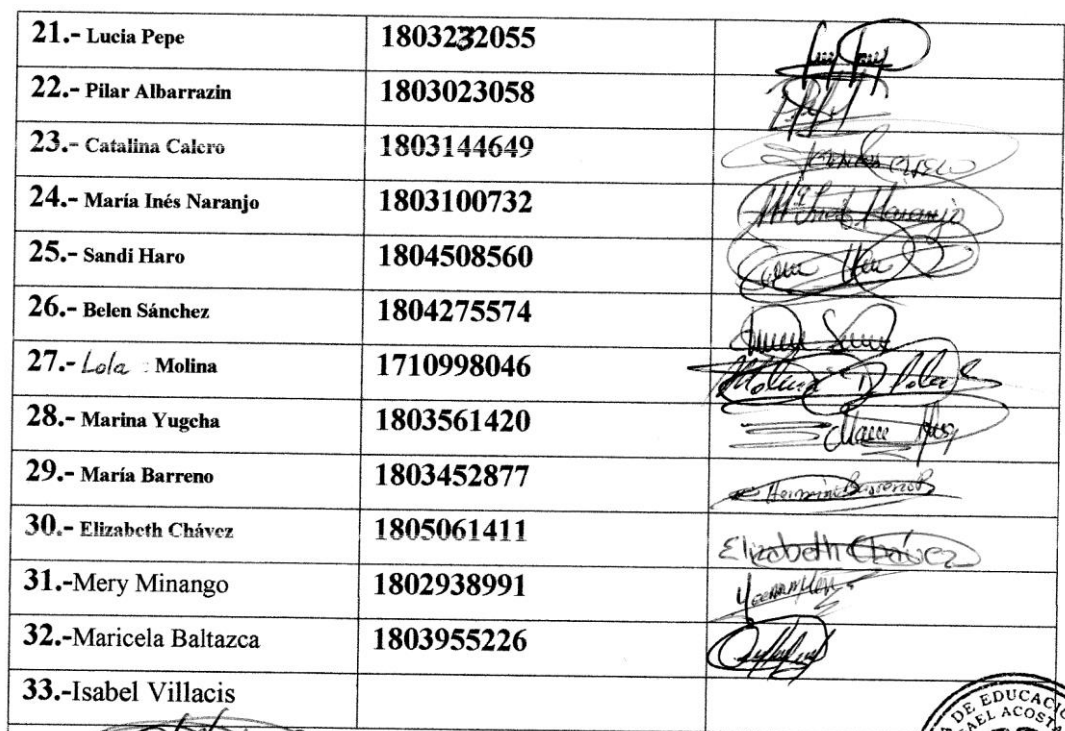 21.- Lucia Pepe 1803232055
22.- Pilar Albarrazin 1803023058
23.- Catalina Calero 1803144649
24.- María Inés Naranjo 1803100732 Mª Inés Naranjo
25.- Sandi Haro 1804508560
26.- Belen Sánchez 1804275574
27.- Lola Molina 1710998046 Molina D Lola
28.- Marina Yugcha 1803561420
29.- María Barreno 1803452877
30.- Elizabeth Chávez 1805061411 Elizabeth Chávez
31.-Mery Minango 1802938991
32.-Maricela Baltazca 1803955226
33.-Isabel Villacis
DE EDUCACIÓ
AEL ACOSTA